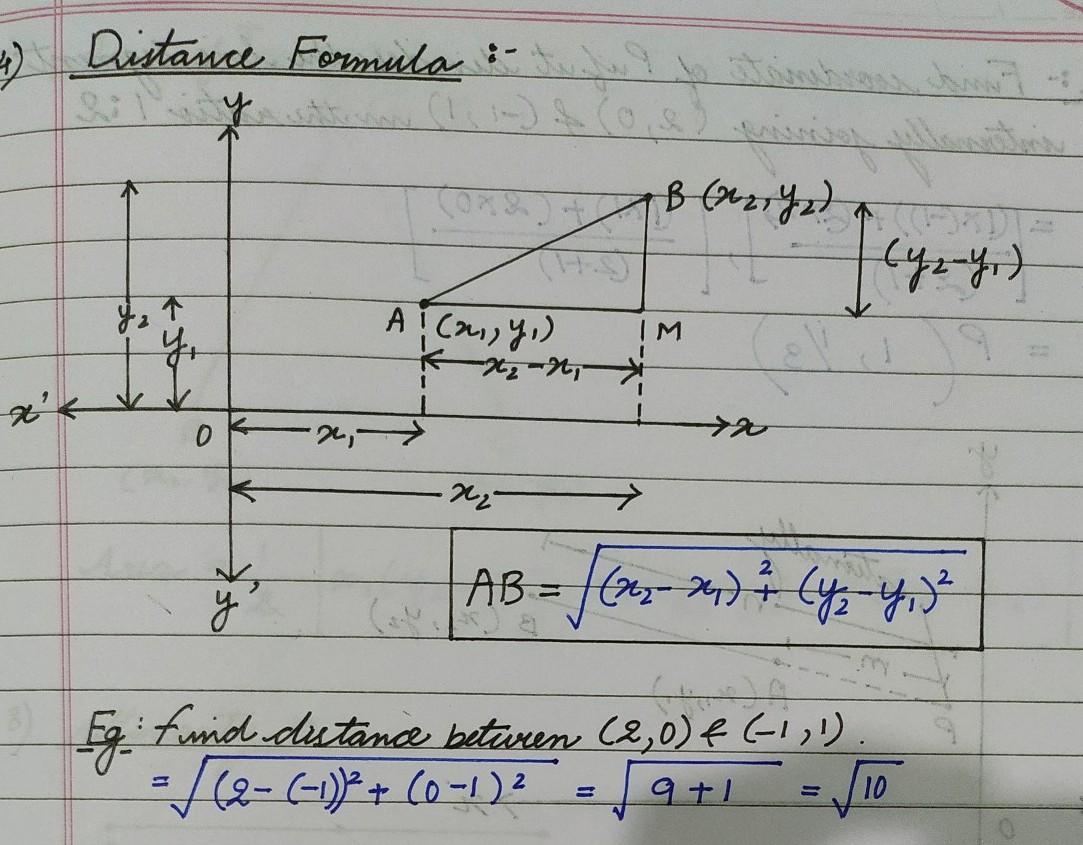 4) Distance Formula :-
y
B (x₂, y₂)
(y₂-y₁)
y₂
y₁
A (x₁, y₁)
M
x₂-x₁
x'
O
x₁
x
x₂
y'
AB = √(x₂-x₁)² + (y₂-y₁)²
Eg: find distance between (2,0) & (-1,1).
= √(2-(-1))² + (0-1)² = √9+1 = √10